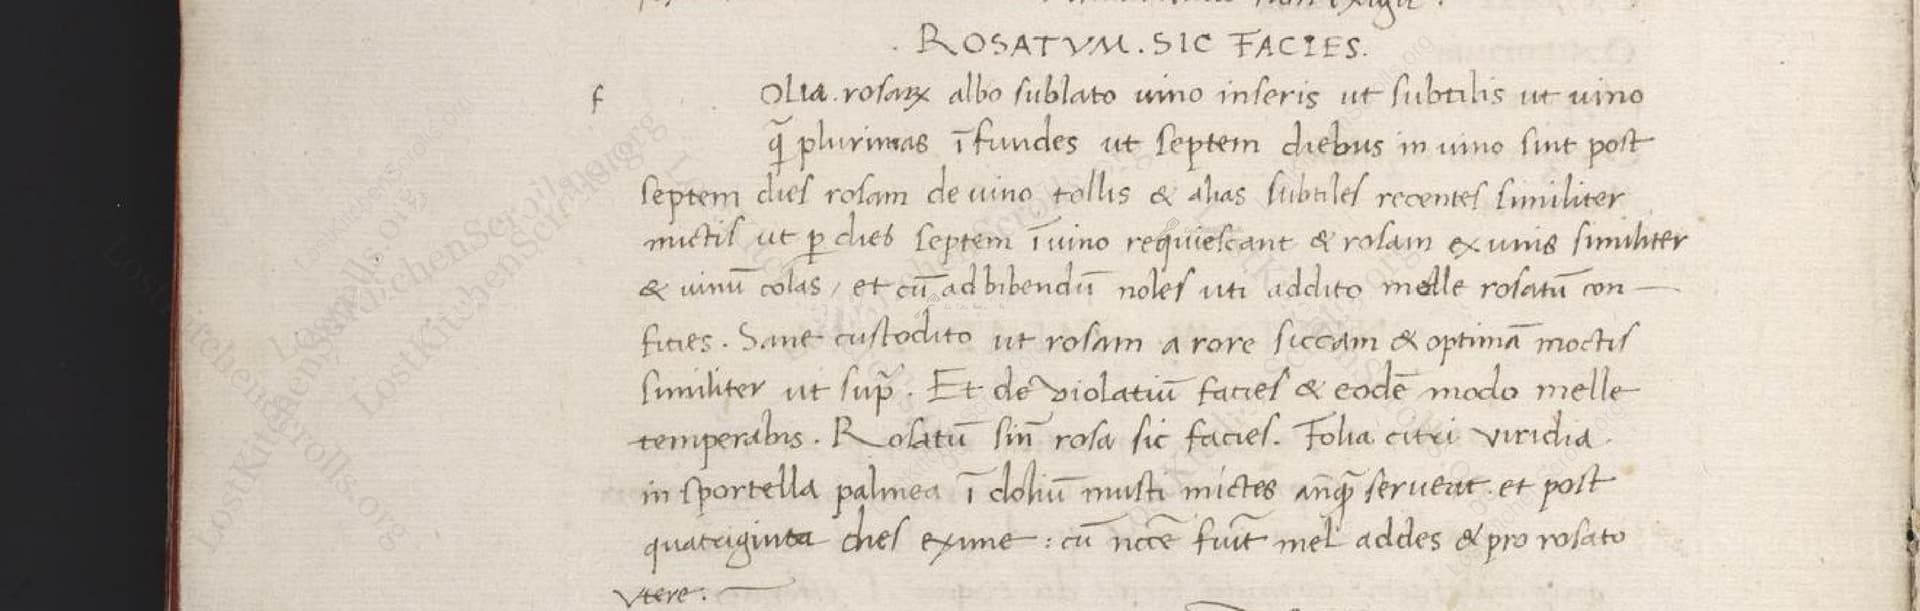 . ROSATVM . SIC FACIES.
f OLIA . rosaꝝ albo sublato uino inseris ut subtilis ut uino
q̄ plurimas ī fundes ut septem diebus in uino sint post
septem dies rosam de uino tollis & alias subtiles recentes similiter
mictis ut ꝑ dies septem ī uino requiescant & rosam eximis similiter
& uinū colas / et cū ad bibendū noles uti addito melle rosatū con
ficies . Sane custodito ut rosam a rore siccam & optimā moctis
similiter ut supͣ . Et de violatiū facies & eodē modo melle
temperabis . Rosatū sin̄ rosa sic facies . Folia citri viridia .
in sportella palmea ī dolium̄ musti mictes anq̄ serueat . et post
quatriginta dies exime : cū nccē fuit̄ mel addes & pro rosato
vtere .